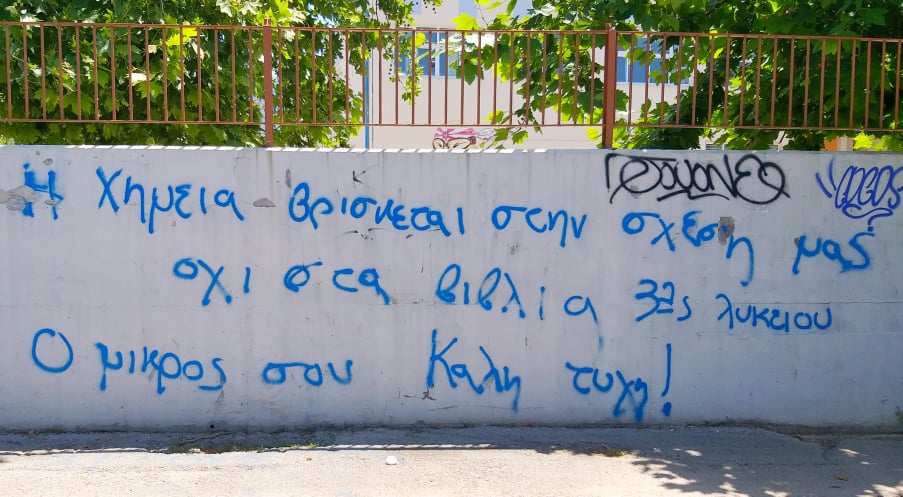 Η χημεια βρισκεται στην σχεση μας
οχι στα βιβλια 3ης λυκειου
Ο μικρος σου Καλη τυχη!